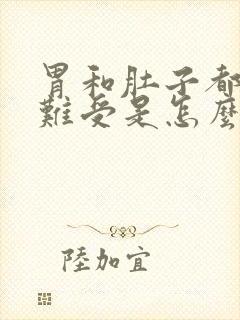 胃和肚子都
難受是怎麼
陸加宜